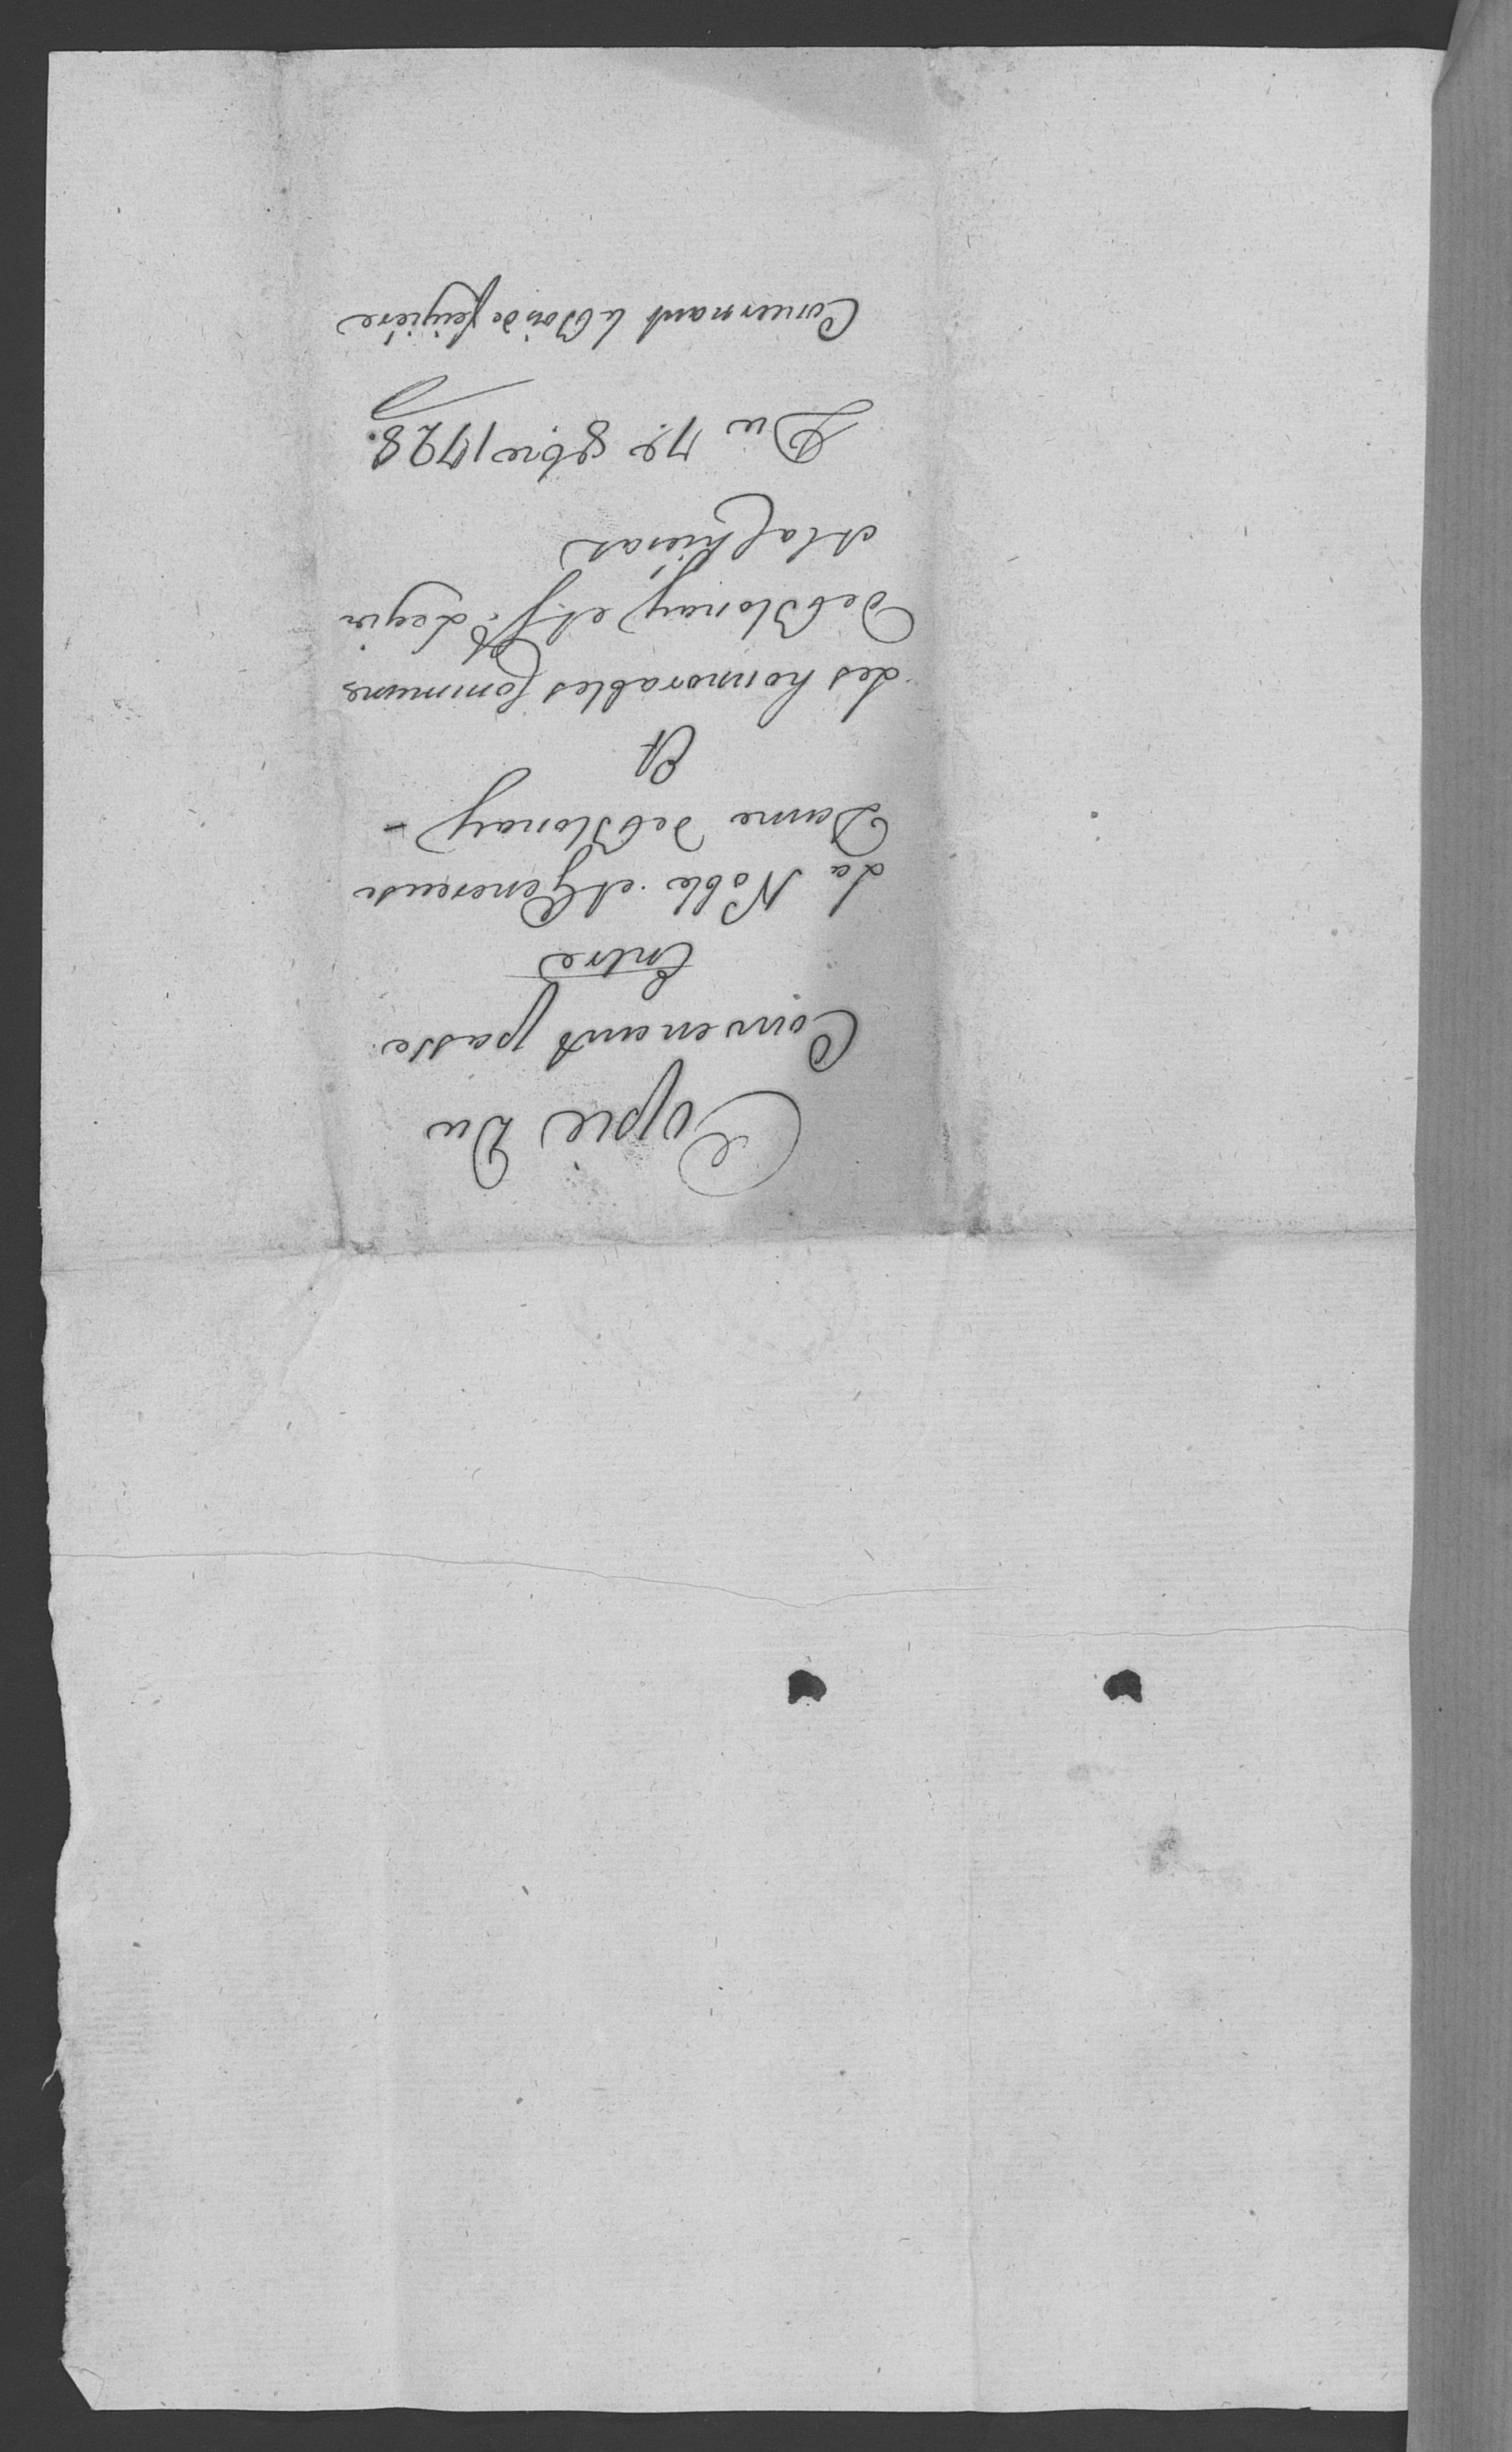 Copie Du
Convenant passe
Entre
La Noble et Genereuse
Dame De Blonay
Et
Les honnorables Communes
De Blonay et St. Legier
et la Chiesaz
Du 7e. 8bre 1728.
Concernant le Bois de feugiere